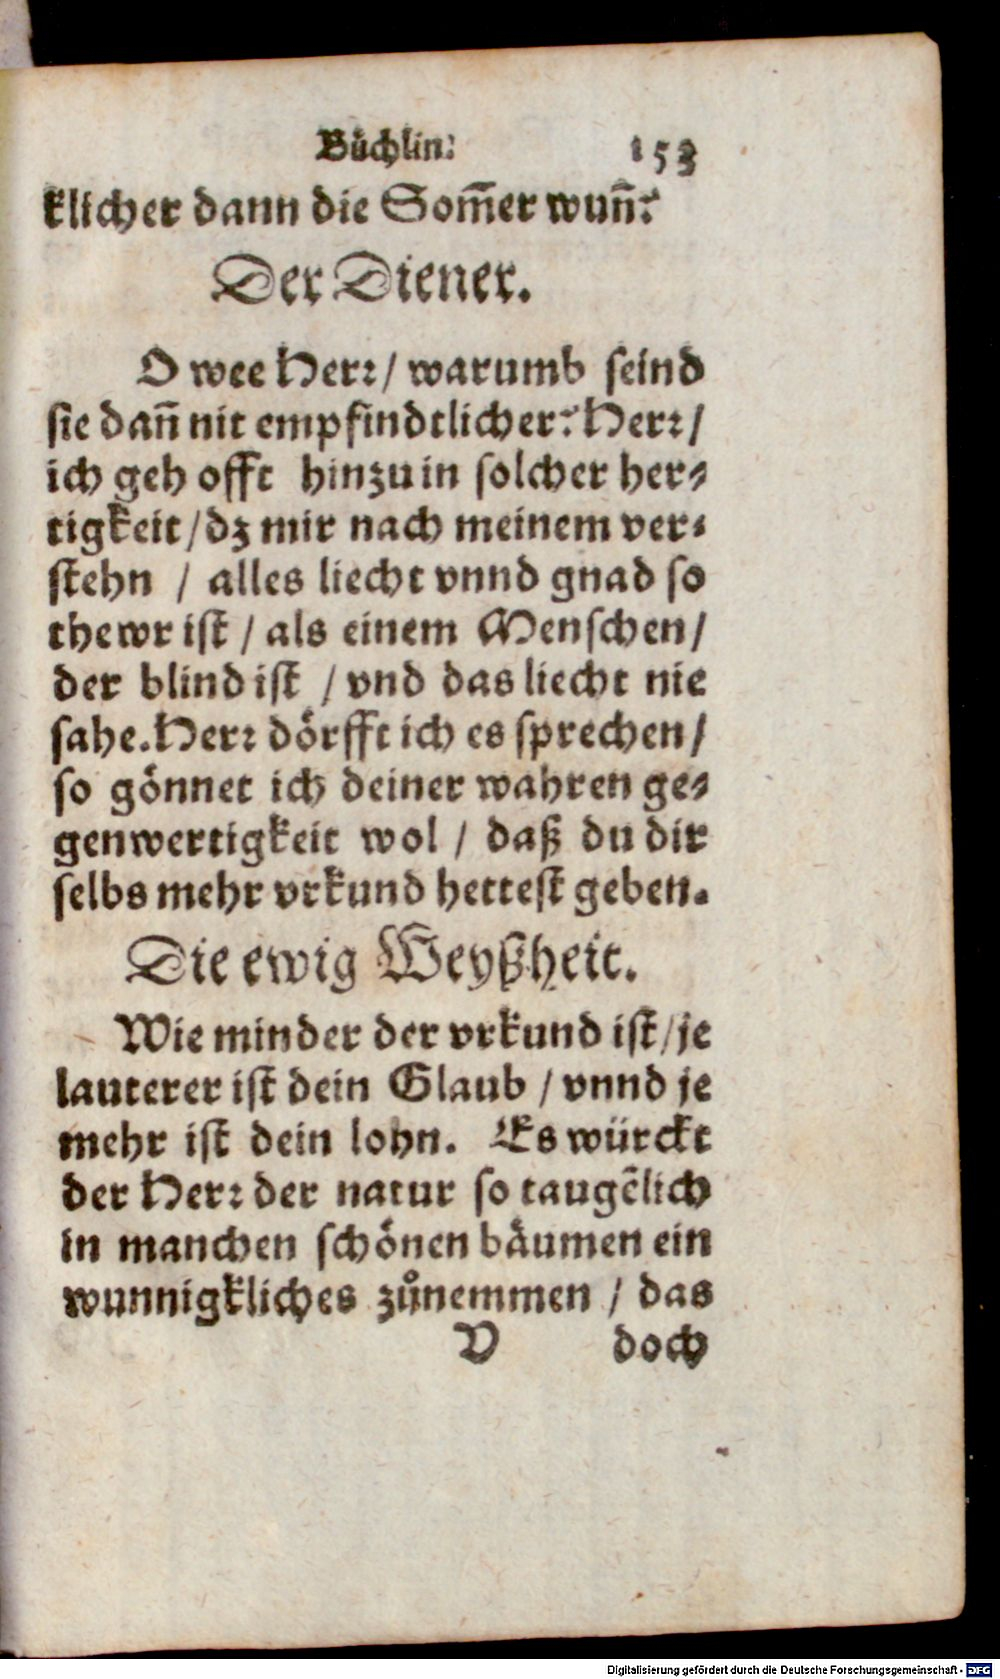 Büchlin. 153
klicher dann die Som̃er wuñ?
Der Diener.
O wee Herꝛ / warumb seind
sie dañ nit empfindtlicher? Herꝛ /
ich geh offt hinzu in solcher her-
tigkeit / dz mir nach meinem ver-
stehn / alles liecht vnnd gnad so
thewr ist / als einem Menschen /
der blind ist / vnd das liecht nie
sahe. Herꝛ dörfft ich es sprechen /
so gönnet ich deiner wahren ge-
genwertigkeit wol / daß du dir
selbs mehr vrkund hettest geben.
Die ewig Weyßheit.
Wie minder der vrkund ist / je
lauterer ist dein Glaub / vnnd je
mehr ist dein lohn. Es würckt
der Herꝛ der natur so taugẽlich
in manchen schönen bäumen ein
wunnigkliches zůnemmen / das
V doch
Digitalisierung gefördert durch die Deutsche Forschungsgemeinschaft - DFG